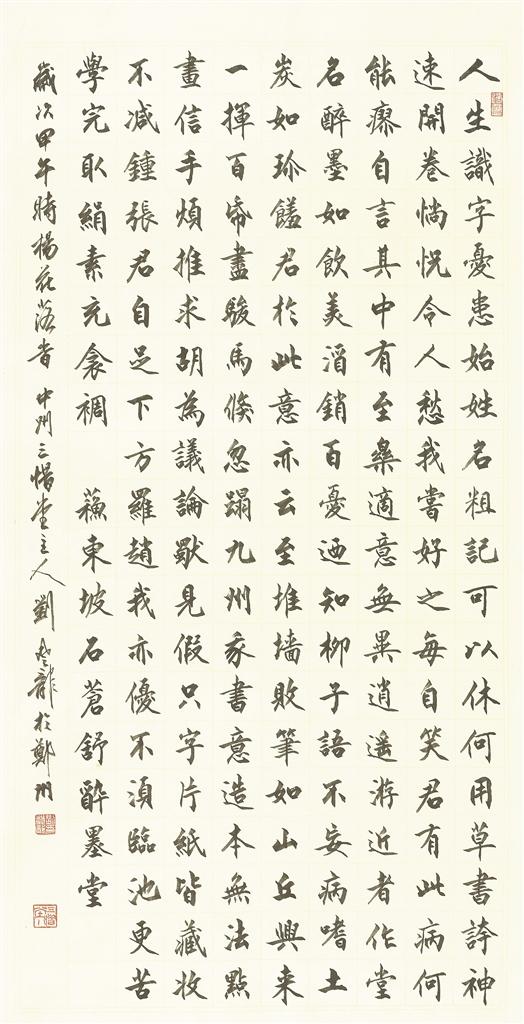 人生識字憂患始姓名粗記可以休何用草書誇神
速開卷惝怳令人愁我嘗好之每自笑君有此病何
能瘳自言其中有至樂適意無異逍遙游近者作堂
名醉墨如飲美酒銷百憂迺知柳子語不妄病嗜土
炭如珍饈君於此意亦云至堆墻敗筆如山丘興来
一揮百帋盡駿馬倐忽蹋九州我書意造本無法點
畫信手煩推求胡為議論獨見假只字片紙皆藏收
不减鍾張君自足下方羅趙我亦優不須臨池更苦
學完取絹素充衾裯 蘇東坡石蒼舒醉墨堂
歲次甲午時楊花落者 中州三惜堂主人劉龍於鄭州